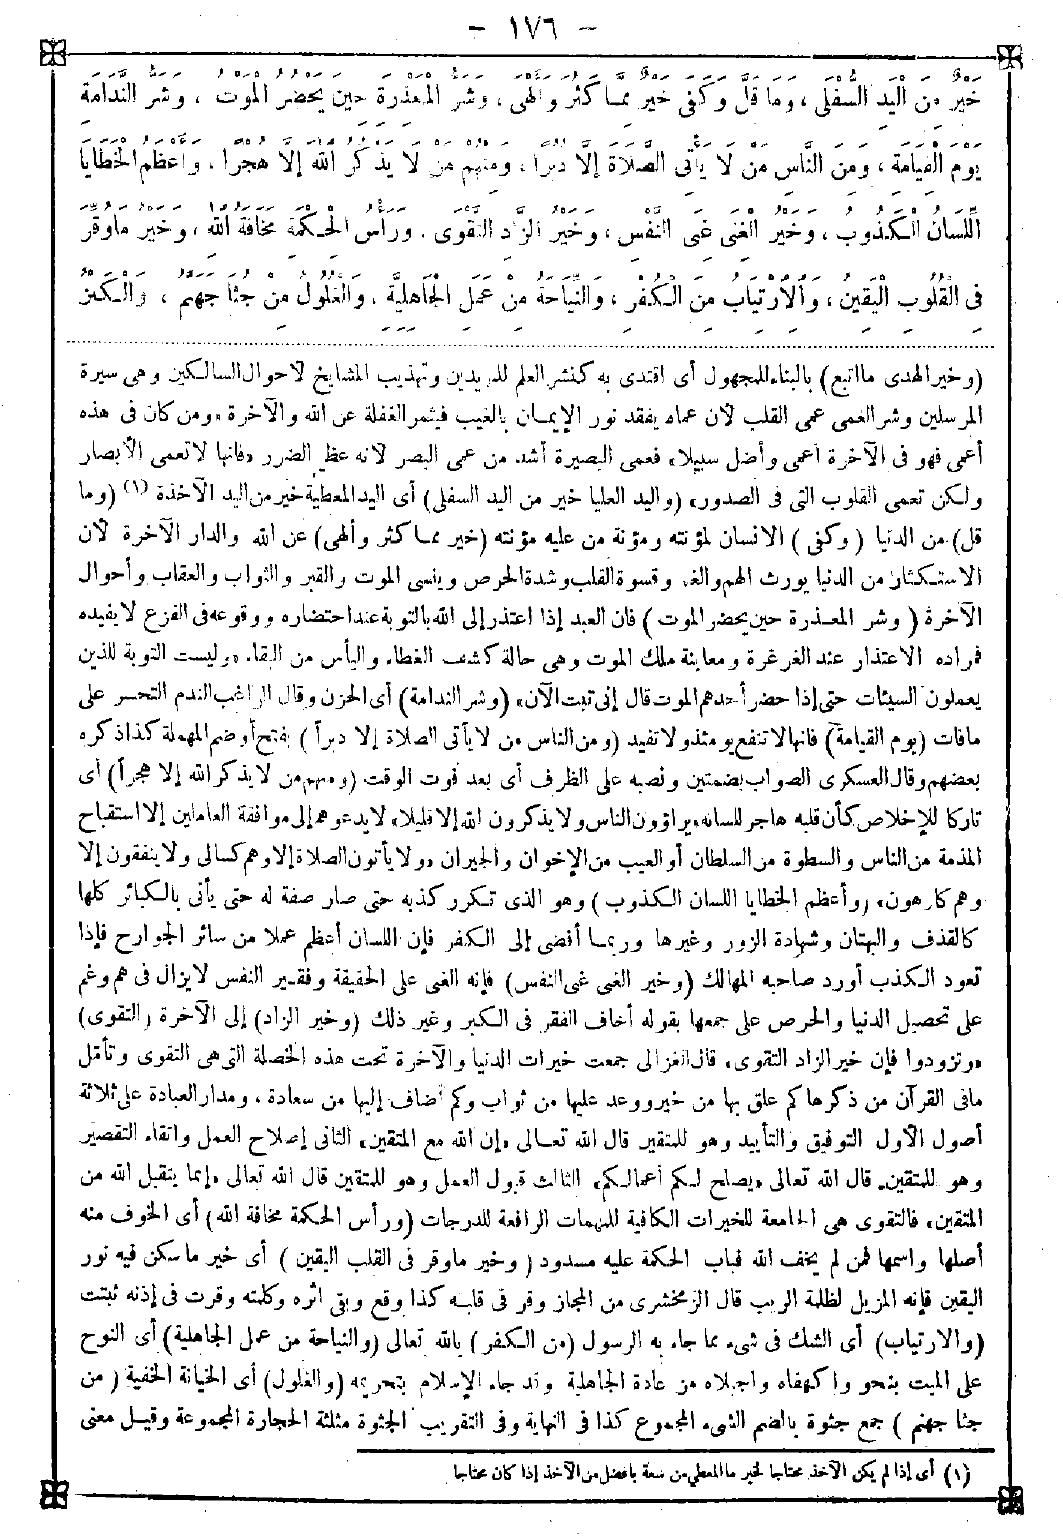 - ١٧٦ -
خَيْرٌ مِنَ الْيَدِ السُّفْلَى ، وَمَا قَلَّ وَكَفَى خَيْرٌ مِمَّا كَثُرَ وَأَلْهَى ، وَشَرُّ الْمَعْذِرَةِ حِينَ يَحْضُرُ الْمَوْتُ ، وَشَرُّ النَّدَامَةِ
يَوْمَ الْقِيَامَةِ ، وَمِنَ النَّاسِ مَنْ لَا يَأْتِى الصَّلَاةَ إِلَّا دُبُرًا ، وَمِنْهُمْ مَنْ لَا يَذْكُرُ اللهَ إِلَّا هَجْرًا ، وَأَعْظَمُ الْخَطَايَا
اللِّسَانُ الْكَذُوبُ ، وَخَيْرُ الْغِنَى غِنَى النَّفْسِ ، وَخَيْرُ الزَّادِ التَّقْوَى . وَرَأْسُ الْحِكْمَةِ مَخَافَةُ اللهِ ، وَخَيْرُ مَا وَقَرَ
فِى الْقُلُوبِ الْيَقِينُ ، وَالِارْتِيَابُ مِنَ الْكُفْرِ ، وَالنِّيَاحَةُ مِنْ عَمَلِ الْجَاهِلِيَّةِ ، وَالْغُلُولُ مِنْ جُثَا جَهَنَّمَ ، وَالْكَنْزُ
(وخير الهدى ما اتبع) بالبناء للمجهول أى اقتدى به كنشر العلم للمريدين وتهذيب المشايخ لاحوال السالكين وهى سيرة
المرسلين وشر العمى عمى القلب لأن عماه يفقد نور الإيمان بالغيب فيثمر الغفلة عن الله والآخرة «ومن كان فى هذه
أعمى فهو فى الآخرة أعمى وأضل سبيلا» فعمى البصيرة أشد من عمى البصر لانه عظيم الضرر «فانها لا تعمى الأبصار
ولكن تعمى القلوب التى فى الصدور» (واليد العليا خير من اليد السفلى) أى اليد المعطية خير من اليد الآخذة (١) (وما
قل) من الدنيا (وكفى) الانسان لمؤنته ومؤنة من عليه مؤنته (خير مما كثر وألهى) عن الله والدار الآخرة لأن
الاستكثار من الدنيا يورث الهم والغم وقسوة القلب وشدة الحرص وينسى الموت والقبر والثواب والعقاب وأحوال
الآخرة (وشر المعذرة حين يحضر الموت) فان العبد إذا اعتذر إلى الله بالتوبة عند احتضاره ووقوعه فى الفزع لا يفيده
فمراده الاعتذار عند الغرغرة ومعاينة ملك الموت وهى حالة كشف الغطاء واليأس من البقاء «وليست التوبة للذين
يعملون السيئات حتى إذا حضر أحدهم الموت قال إنى تبت الآن» (وشر الندامة) أى الحزن وقال الراغب الندم التحسر على
مافات (يوم القيامة) فانها لا تنفع يومئذ ولا تفيد (ومن الناس من لا يأتى الصلاة إلا دبرا) بفتح أو ضم المهملة كذا ذكره
بعضهم وقال العسكرى الصواب بضمتين ونصبه على الظرف أى بعد فوت الوقت (ومنهم من لا يذكر الله إلا هجرا) أى
تاركا للإخلاص كأن قلبه هاجر للسانه «يراؤون الناس ولا يذكرون الله إلا قليلا» لا يدعوهم إلى موافقة العاملين إلا استقباح
المذمة من الناس والسطوة من السلطان أو العيب من الإخوان والجيران «ولا يأتون الصلاة إلا وهم كسالى ولا ينفقون إلا
وهم كارهون» (وأعظم الخطايا اللسان الكذوب) وهو الذى تكرر كذبه حتى صار صفة له حتى يأتى بالكبائر كلها
كالقذف والبهتان وشهادة الزور وغيرها وربما أفضى إلى الكفر فإن اللسان أعظم عملا من سائر الجوارح فإذا
تعود الكذب أورد صاحبه المهالك (وخير الغنى غنى النفس) فإنه الغنى على الحقيقة وفقير النفس لا يزال فى هم وغم
على تحصيل الدنيا والحرص على جمعها بقوله أخاف الفقر فى الكبر وغير ذلك (وخير الزاد) إلى الآخرة (التقوى)
«وتزودوا فإن خير الزاد التقوى» قال الغزالى جمعت خيرات الدنيا والآخرة تحت هذه الخصلة التى هى التقوى وتأمل
مافى القرآن من ذكرها كم علق بها من خير ووعد عليها من ثواب وكم أضاف إليها من سعادة ، ومدار العبادة على ثلاثة
أصول الأول التوفيق والتأييد وهو للمتقين قال الله تعالى «إن الله مع المتقين» الثانى إصلاح العمل واتقاء التقصير
وهو للمتقين. قال الله تعالى «يصلح لكم أعمالكم» الثالث قبول العمل وهو للمتقين قال الله تعالى «إنما يتقبل الله من
المتقين» فالتقوى هى الجامعة للخيرات الكافية للمهمات الرافعة للدرجات (ورأس الحكمة مخافة الله) أى الخوف منه
أصلها واسمها فمن لم يخف الله فباب الحكمة عليه مسدود (وخير ماوقر فى القلب اليقين) أى خير ما سكن فيه نور
اليقين فإنه المزيل لظلمة الريب قال الزمخشرى من المجاز وقر فى قلبه كذا وقع وبقى أثره وكلمته وقرت فى إذنه ثبتت
(والارتياب) أى الشك فى شىء مما جاء به الرسول (من الكفر) بالله تعالى (والنياحة من عمل الجاهلية) أى النوح
على الميت بنحو واكهفاه واجبلاه من عادة الجاهلية وقد جاء الإسلام بتحريمه (والغلول) أى الخيانة الخفية (من
جثا جهنم) جمع جثوة بالضم الشىء المجموع كذا فى النهاية وفى التقريب الجثوة مثلثة الحجارة المجموعة وقيل معنى
(١) أى إذا لم يكن الآخذ محتاجا لخبر ما المعطى من سعة بأفضل من الآخذ إذا كان محتاجا